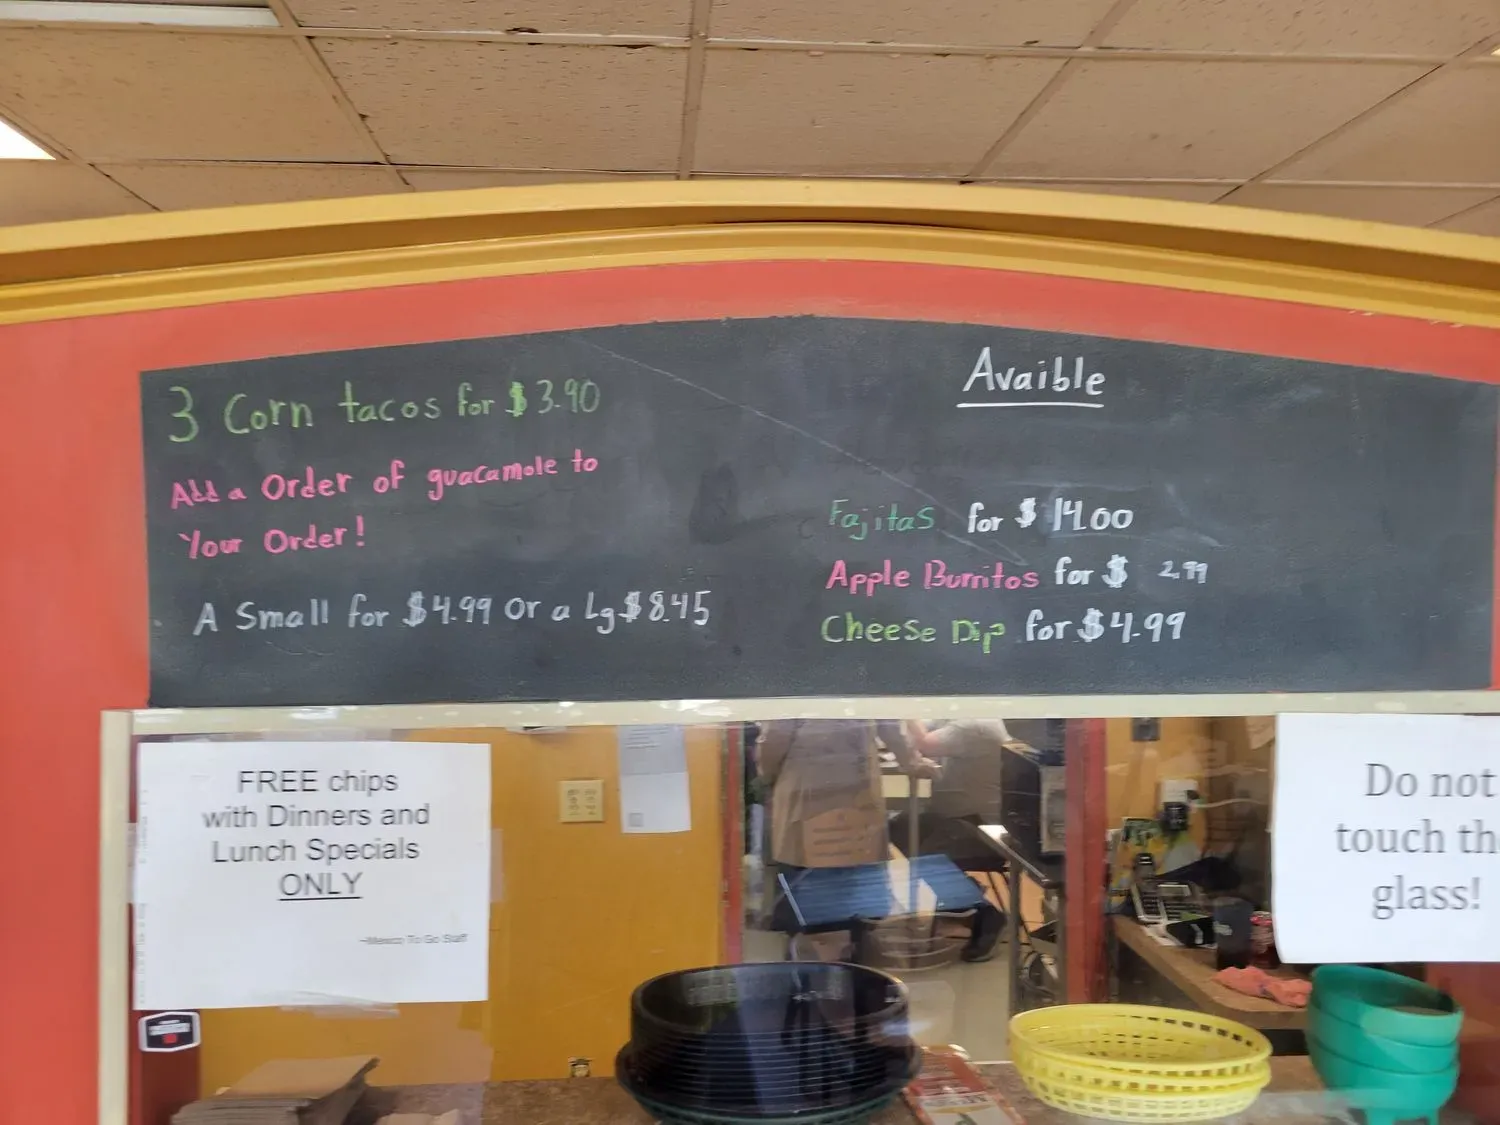 3 Corn tacos for $3.90
Add a Order of guacamole to
Your Order!
A Small for $4.99 Or a Lg $8.45
Avaible
Fajitas for $14.00
Apple Burritos for $ 2.99
Cheese Dip for $4.99
FREE chips
with Dinners and
Lunch Specials
ONLY
~Mexico To Go Staff
Do not
touch the
glass!